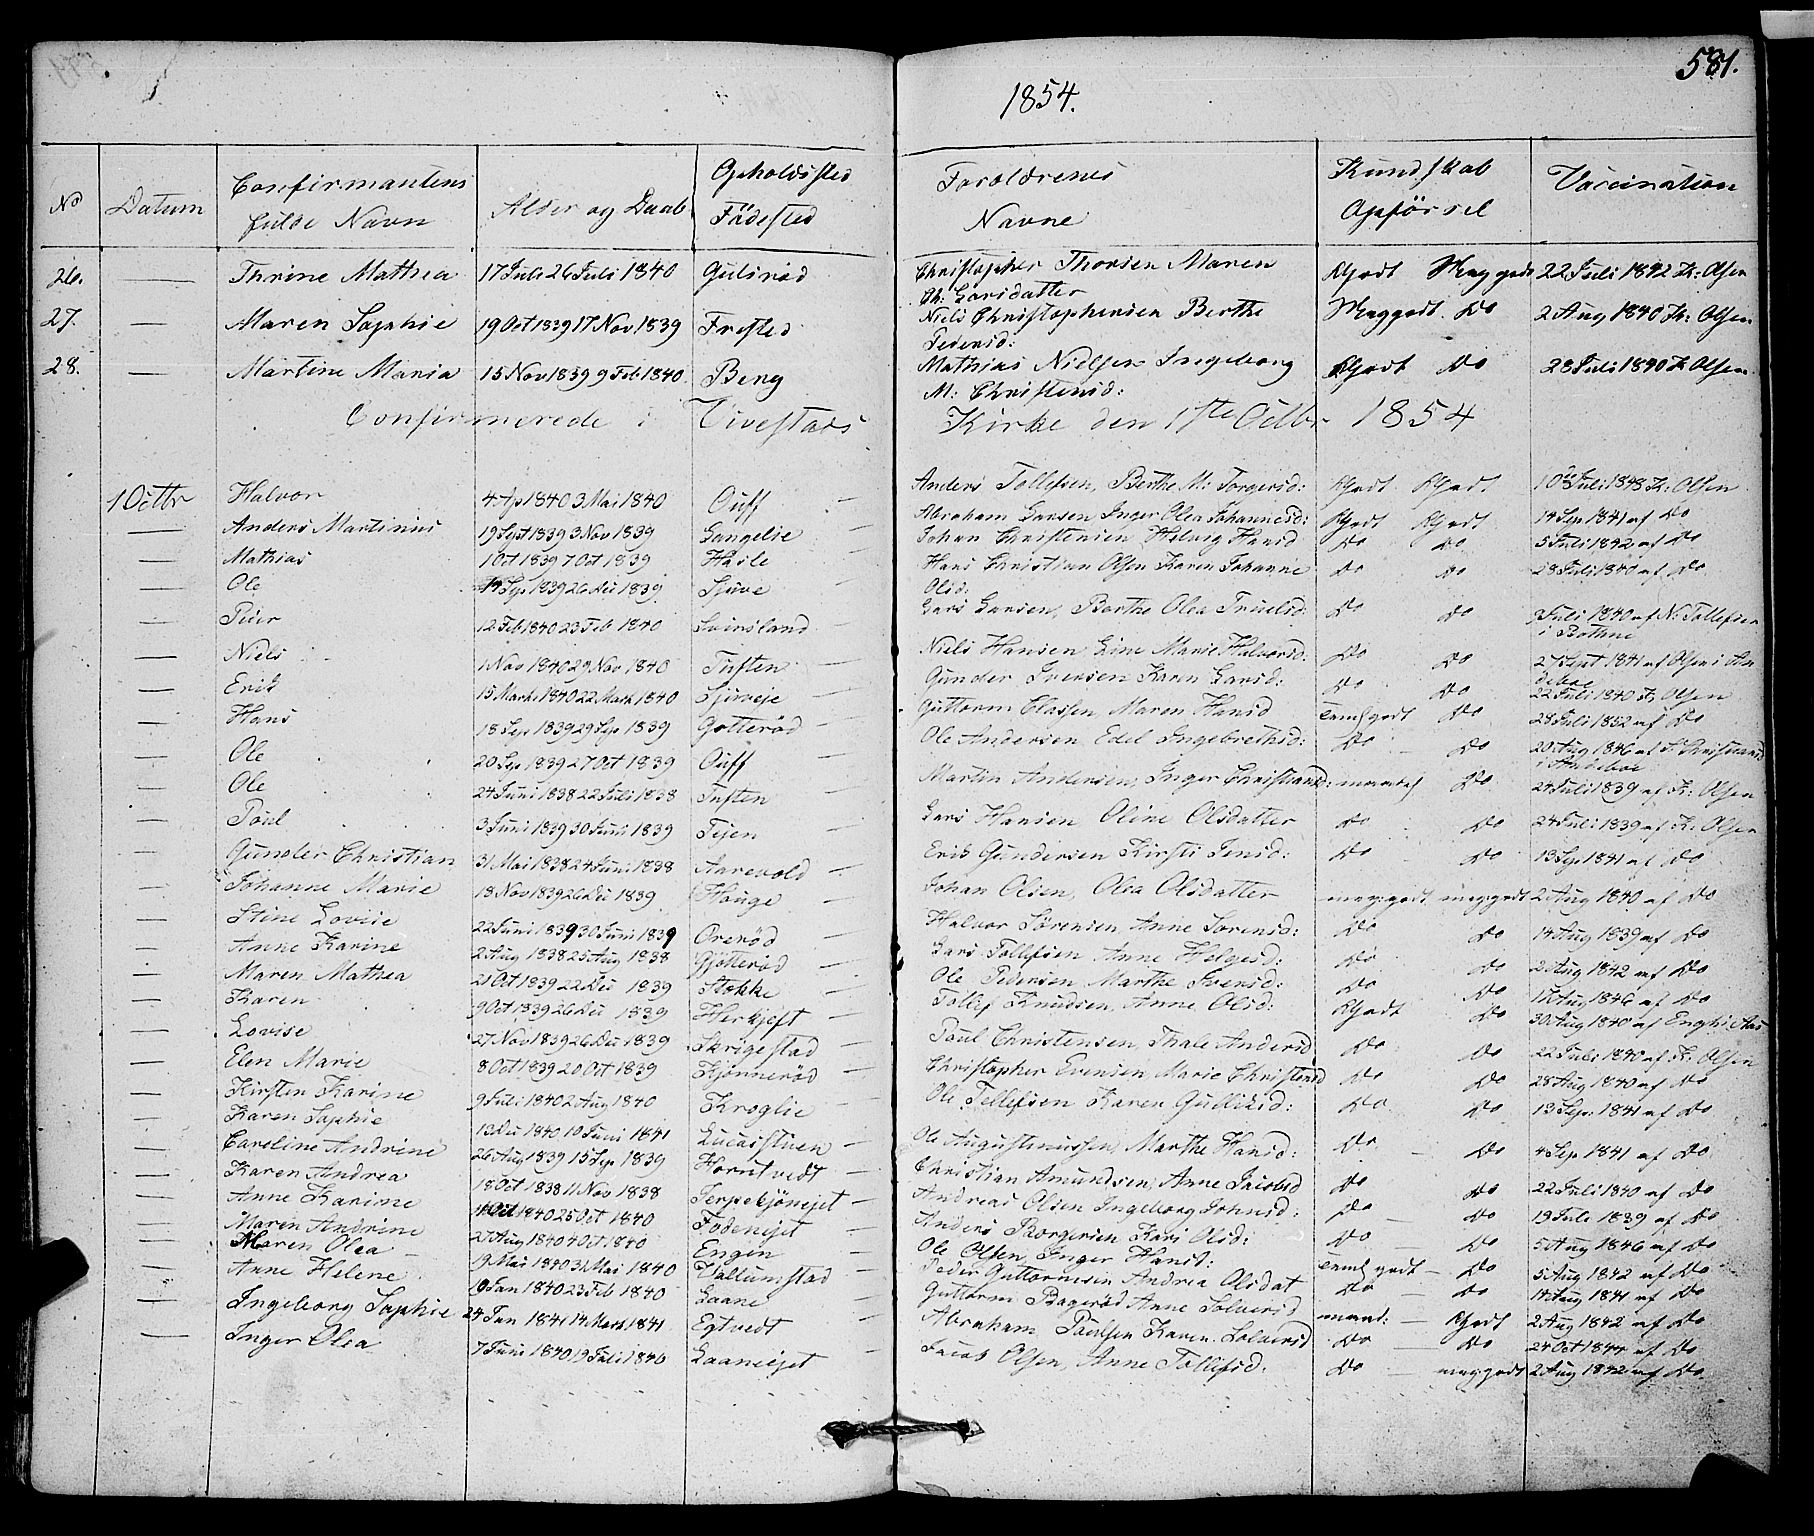 581.
1854.
No Datum Confirmantens fulde Navn Alder og Daab Opholdssted Födested Forældrenes Navne Kundskab Opførsel Vaccination
26. — Thrine Mathea 17 Juli 26 Juli 1840 Gulsrød Christopher Thorsen Maren Ch: Larsdatter Godt Meg godt 22 Juli 1842 K: Olsen
27. — Maren Sophie 19 Oct 1839 17 Nov 1839 Frested Niels Christophersen Berthe Pedersd: Meg godt Do 2 Aug 1840 K: Olsen
28. — Martine Maria 15 Nov 1839 9 Feb 1840 Berg Mathias Nielsen Ingeborg M: Christensd: Godt Do 28 Juli 1840 K: Olsen
Confirmerede i Vivestads Kirke den 1ste Octbr 1854
1 Octbr Halvor 4 Ap 1840 3 Mai 1840 Ouff — Anders Tollefsen, Berthe M: Torgersd: Godt Godt 10 Juli 1848 K: Olsen
— Anders Martinius 19 Sept 1839 3 Nov 1839 Langelie — Abraham Larsen Inger Olea Johannesd: Godt Godt 14 Sep 1841 af Do
— Mathias 1 Oct 1839 7 Oct 1839 Hasle — Johan Christensen Helvig Hansd Do Do 5 Juli 1842 af Do
— Ole Sep 1839 26 Dec 1839 Sjuve — Hans Christian Olsen Karen Johanne Olsd: Do Do 28 Juli 1840 af Do
— Peder 12 Feb 1840 23 Feb 1840 Svinsland — Lars Larsen, Berthe Olea Truelsd: Do Do Juli 1840 af N: Tollefsen i Bothne
— Niels 1 Nov 1840 29 Nov 1840 Tuften — Niels Hansen Line Marie Halvorsd: Do Do 27 Sept 1841 af Olsen i Andeboe
— Erik 15 Marts 1840 22 Marts 1840 Sjuveje — Gunder Svensen Karen Larsd: Do Do 22 Juli 1840 K: Olsen
— Hans 18 Sep 1839 29 Sep 1839 Gotterød — Guttorm Classen Maren Hansd Teml godt Do 28 Juli 1852 af Do
— Ole 20 Sep 1839 27 Oct 1839 Ouff — Ole Andersen Edel Ingebrethsd: Do Do 20 Aug 1846 af Christians i Andeboe
— Ole 24 Juni 1838 22 Juli 1838 Tuften — Martin Andersen, Inger Christiansd: maadel Do 24 Juli 1839 af K: Olsen
— Poul 3 Juni 1839 30 Juni 1839 Tejen — Lars Hansen Oline Olsdatter Do Do 24 Juli 1839 af K: Olsen
— Gunder Christian 31 Mai 1838 24 Juni 1838 Aarevold — Erik Gundersen Kirsti Jensd: Do Do 13 Sep 1841 af Do
— Johanne Marie 18 Nov 1839 26 Dec 1839 Houge — Johan Olsen, Olea Olsdatter meg: godt meg: godt 2 Aug 1840 af Do
— Stine Lovise 22 Juni 1839 30 Juni 1839 Orerød — Halvor Sörensen Anne Sorensd: Do Do 14 Aug 1839 af Do
— Anne Karine 2 Aug 1838 25 Aug 1838 Gjötterød — Lars Tollefsen Anne Helgesd: Do Do 2 Aug 1842 af Do
— Maren Mathea 21 Oct 1839 22 Dec 1839 Stokke — Ole Pedersen Marthe Svensd: Do Do Aug 1846 af Do
— Karen 9 Oct 1839 26 Dec 1839 Herkjeft — Tollef Knudsen, Anne Olsd: Godt Do 30 Aug 1840 af Engh i Aas
— Lovise 27 Nov 1839 26 Dec 1839 Skrigestad — Paul Christensen, Thale Andersd Do Do 22 Juli 1840 af K: Olsen
— Elen Marie 8 Oct 1839 20 Oct 1839 Kjønnerød — Christopher Evensen Marie Christensd Do Do 28 Aug 1840 af Do
— Kirsten Karine 9 Juli 1840 2 Aug 1840 Kroglie — Ole Tollefsen Karen Gulliksd: Do Do 13 Sep: 1841 af Do
— Karen Sophie 13 Dec 1840 10 Juni 1841 Lucasstuen — Ole Augustinussen, Marthe Hansd: Do Do 4 Sep 1841 af Do
— Caroline Andrine 26 Aug 1839 15 Sep 1839 Horntvedt — Christian Amundsen, Anne Jacobsd Do Do 22 Juli 1840 af Do
— Karen Andrea 18 Oct 1838 11 Nov 1838 Terpekjönejet — Andreas Olsen Ingeborg Johnsd: Do Do 19 Juli 1839 af Do
— Anne Karine Oct 1840 25 Oct 1840 Fodenejet — Anders Borgersen Kari Olsd: Do Do 5 Aug 1846 af Do
— Maren Andrine 27 Aug 1840 4 Oct 1840 Engen — Ole Olsen, Inger Hansd: Teml godt Do 5 Aug 1842 af Do
— Maren Olea 9 Mai 1840 31 Mai 1840 Vallumstad — Peder Guttormsen Andrea Olsdat Do Do 14 Aug 1841 af Do
— Anne Helene 19 Jan 1840 23 Feb 1840 Laane — Guttorm Bagerød Anne Solversd maad: Godt 2 Aug 1842 af Do
— Ingeborg Sophie 24 Jan 1841 14 Marts 1841 Egtvedt — Abraham Paulsen Karen Solversd Do Do 24 Oct 1844 af Do
— Inger Olea 7 Juni 1840 19 Juli 1840 Laaneiet — Jacob Olsen, Anne Tollefsd: Do meg: godt 2 Aug 1842 af Do